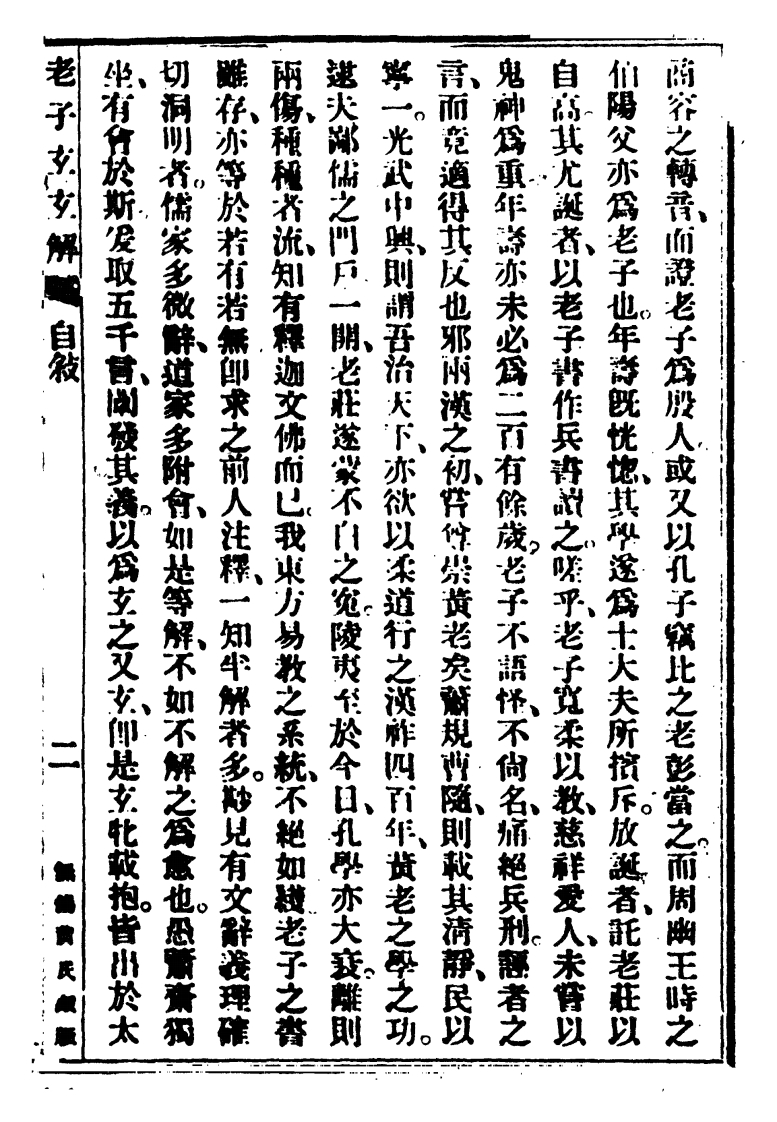 商容之轉音、而證老子爲殷人。或又以孔子竊比之老彭當之。而周幽王時之
伯陽父亦爲老子也。年壽既恍惚、其學遂爲士大夫所擯斥。放誕者、託老莊以
自高。其尤誕者、以老子書作兵書讀之。嗟乎、老子寬柔以教、慈祥愛人、未嘗以
鬼神爲重。年壽亦未必爲二百有餘歲。老子不語怪、不尙名、痛絕兵刑。謬者之
言、而竟適得其反也邪。兩漢之初、嘗尊崇黃老矣。蕭規曹隨、則載其淸靜、民以
寧一。光武中興、則謂吾治天下、亦欲以柔道行之。漢祚四百年、黃老之學之功。
逮夫鄒儒之門戶一開、老莊遂蒙不白之寃。陵夷至於今日、孔學亦大衰。離則
兩傷、種種者流、知有釋迦文佛而已。我東方易教之系統、不絕如綫。老子之書
雖存、亦等於若有若無。卽求之前人注釋、一知半解者多。尠見有文辭義理確
切洞明者。儒家多微辭、道家多附會、如是等解、不如不解之爲愈也。愚齋獨
坐、有會於斯。爰取五千言、闡發其義。以爲玄之又玄、卽是玄牝載抱。皆出於太
老子玄玄解 自敍 二 無錫黃氏叢版